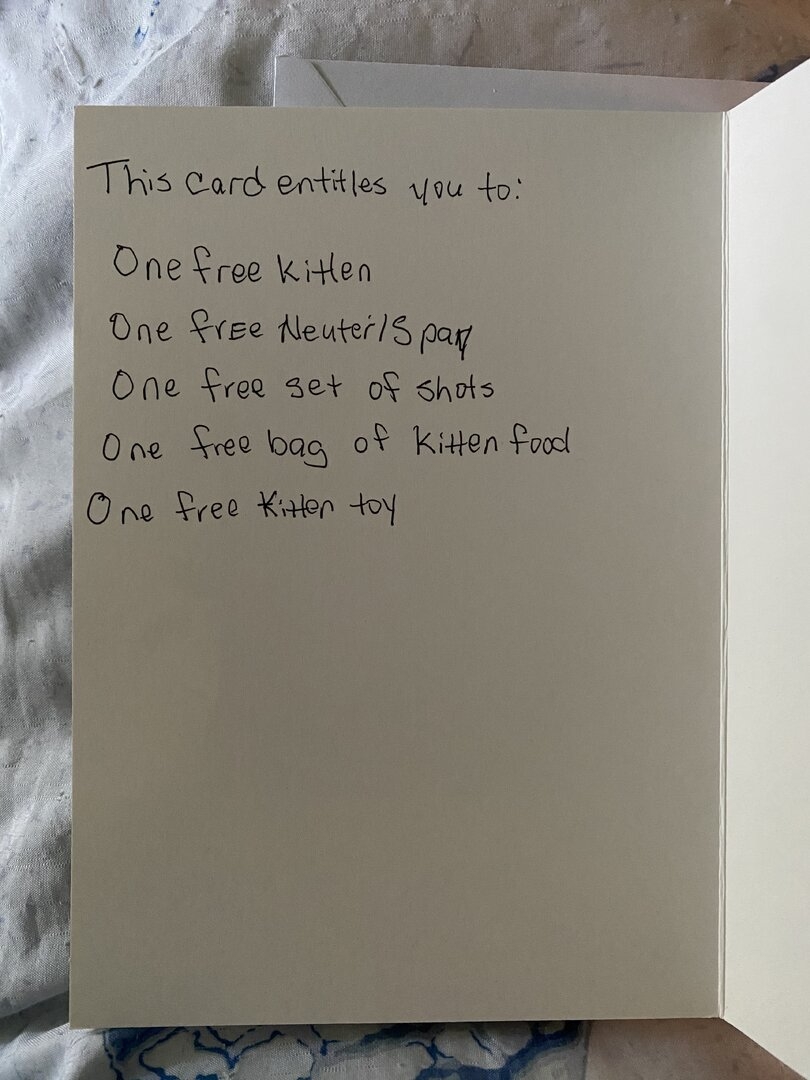 This card entitles you to:
One free kitten
One frEE Neuter/Spay
One free set of shots
One free bag of kitten food
One free kitten toy